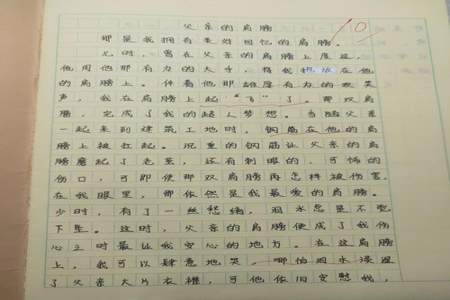 父亲的肩膀
10
那是我拥有美好回忆的肩膀。
儿时,常在父亲的肩膀上度过,
他用他那有力的大手,将我抱放在他
的肩膀上。伴着他那雄厚有力的欢笑
声,我在肩膀上起“飞”了。那双肩
膀,完成了我的超人梦想。当随父亲
一起来到建筑工地时,钢筋在他的肩
膀上被扛起。沉重的钢筋让父亲的肩
膀磨起了老茧,还有刺眼的、可怖的
伤口,可即使那双肩膀再怎样被伤害,
在我眼里,那依然是我最爱的肩膀。
少时,有了一丝愁绪,泪水总是不免
下坠。这时,父亲的肩膀便成了我伤
心之时最让我安心的地方。在这肩膀
上,我可以肆意地哭,哪怕泪水浸湿
了父亲大片衣襟,可他依旧安慰我,